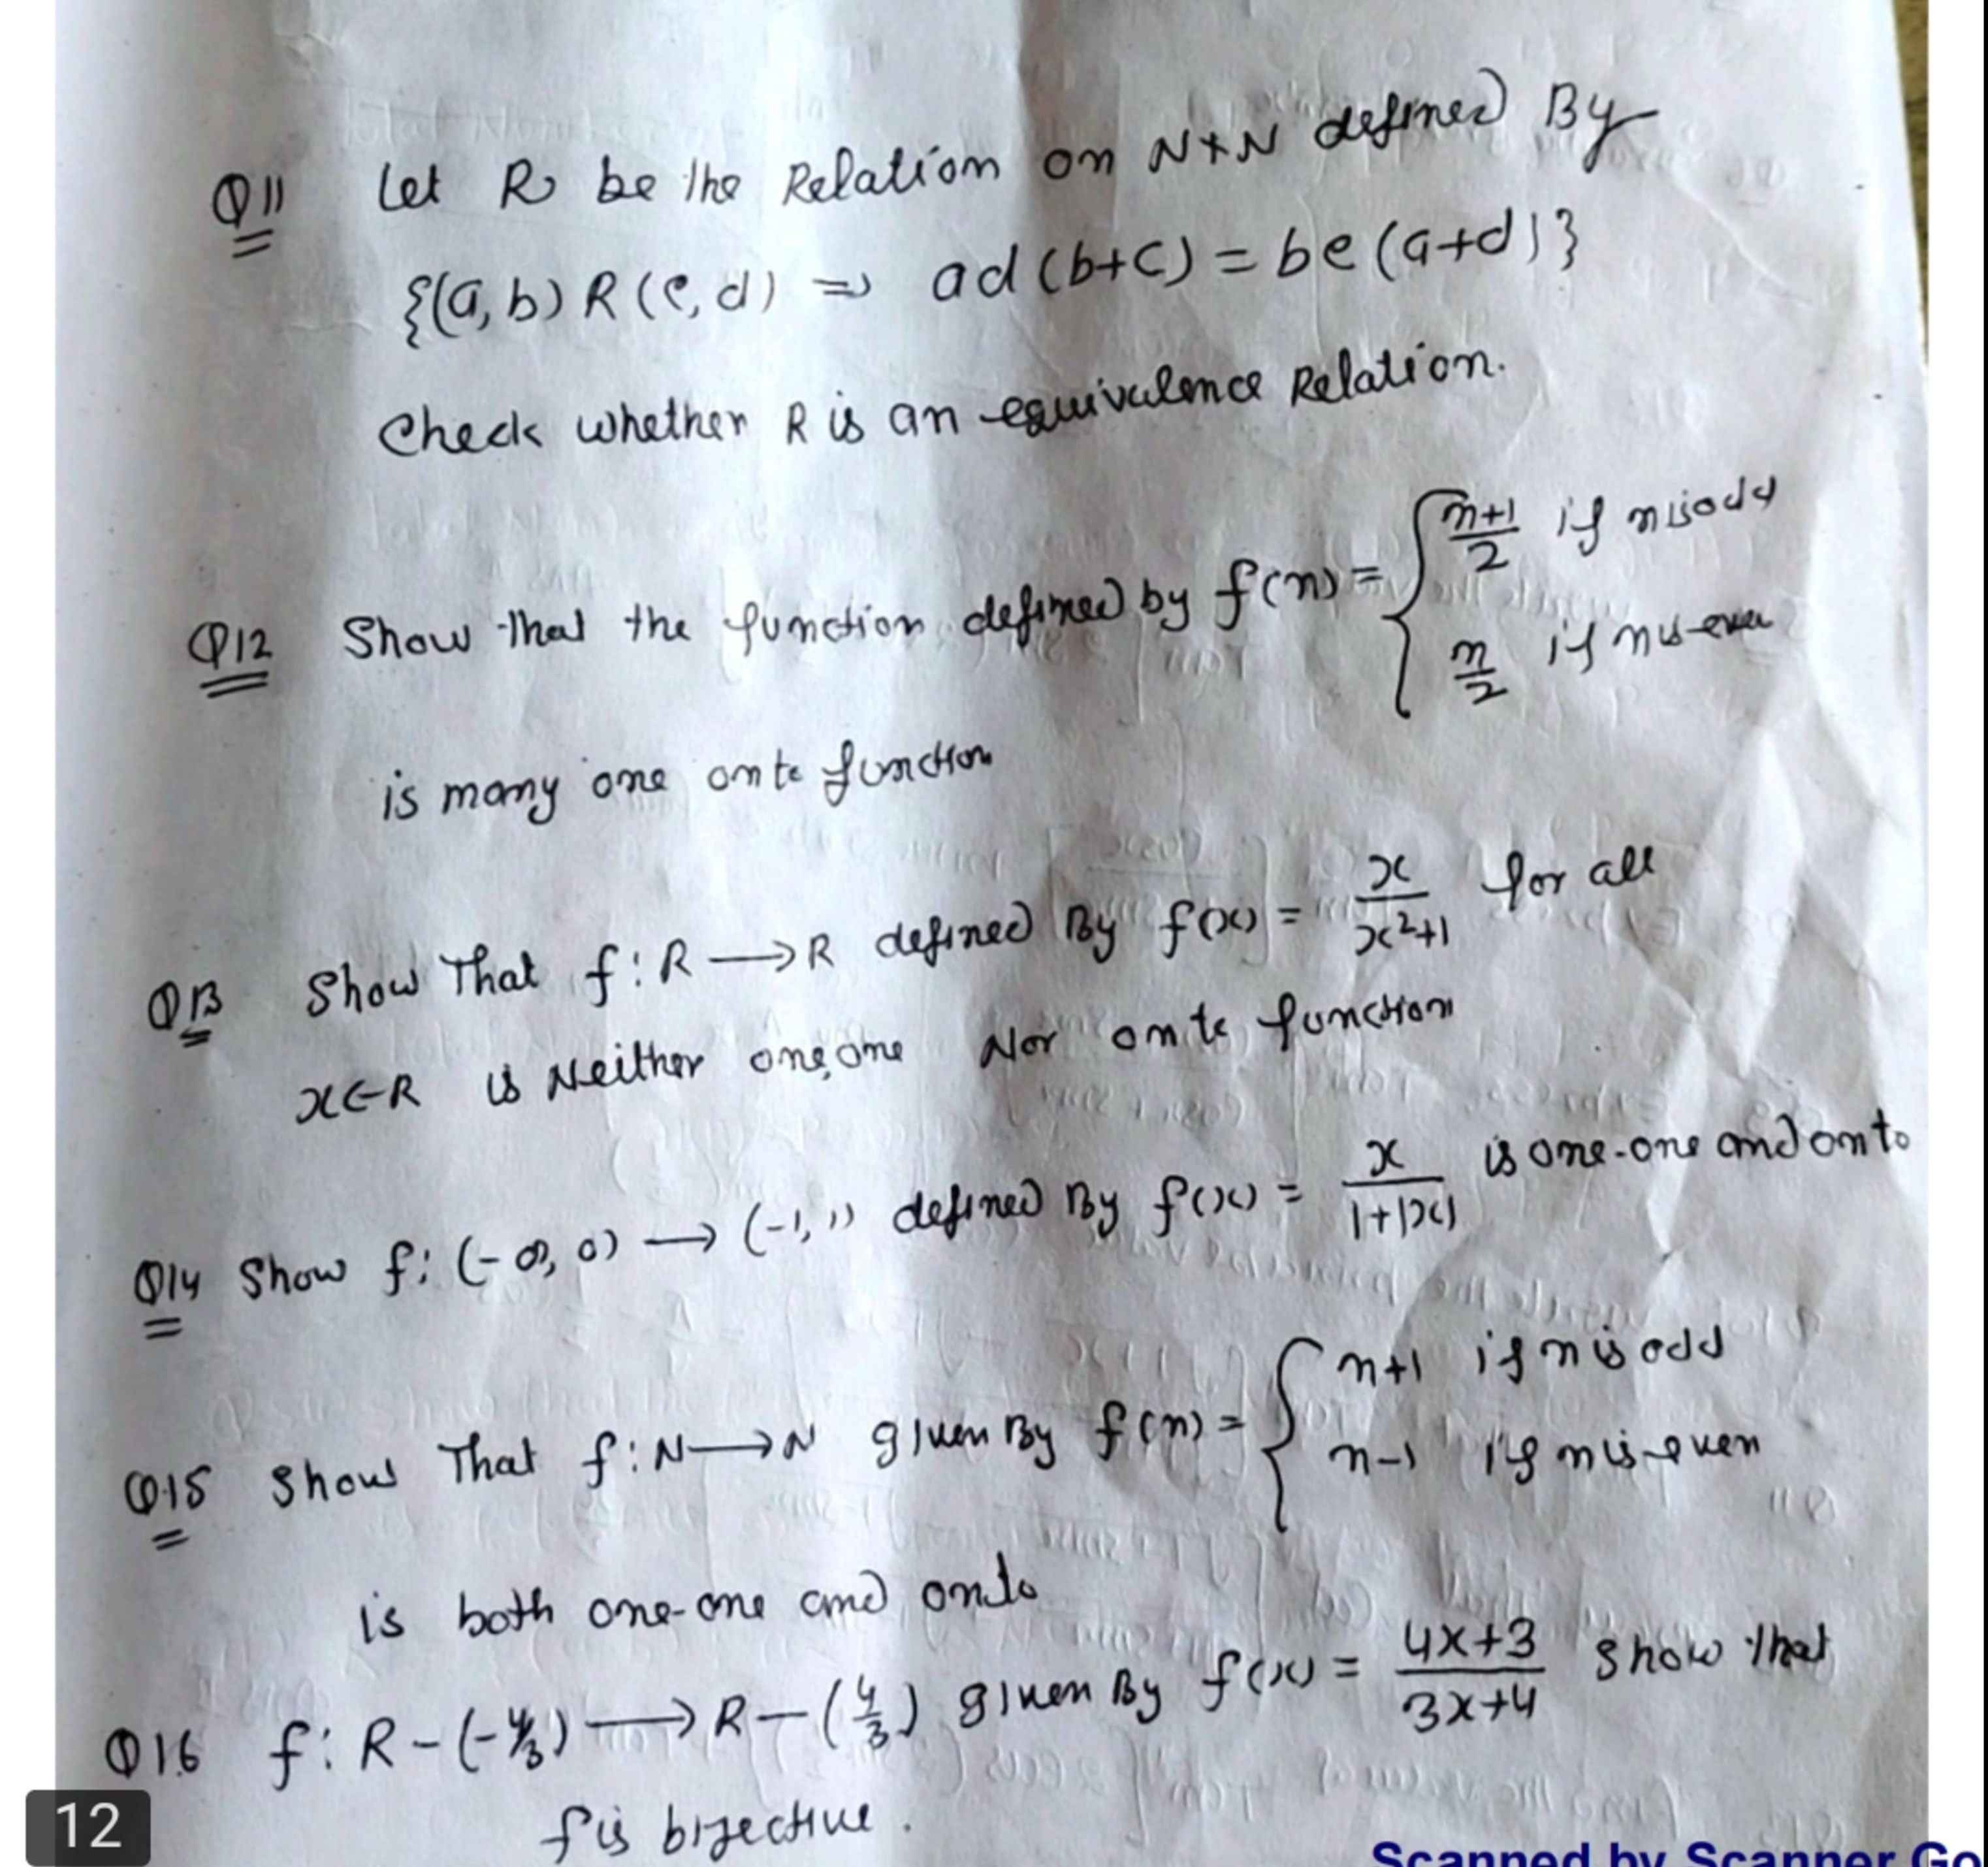 Q11 Let R be the Relation on N×N defined By
{(a, b) R (c, d) => ad (b+c) = bc (a+d)}
Check whether R is an equivalence Relation.
Q12 Show that the function defined by f(n) = { n+1/2 if n is odd
n/2 if n is even
is many one onto function
Q13 Show That f : R → R defined By f(x) = x/x²+1 for all
x∈R is Neither one, one Nor onto function
Q14 Show f : (-∞, 0) → (-1, 1) defined By f(x) = x/1+|x| is one-one and onto
Q15 Show That f : N → N given By f(n) = { n+1 if n is odd
n-1 if n is even
is both one-one and onto
Q16 f : R - (-4/3) → R - (4/3) given By f(x) = 4x+3/3x+4 show that
f is bijective.
12
Scanned by Scanner Go